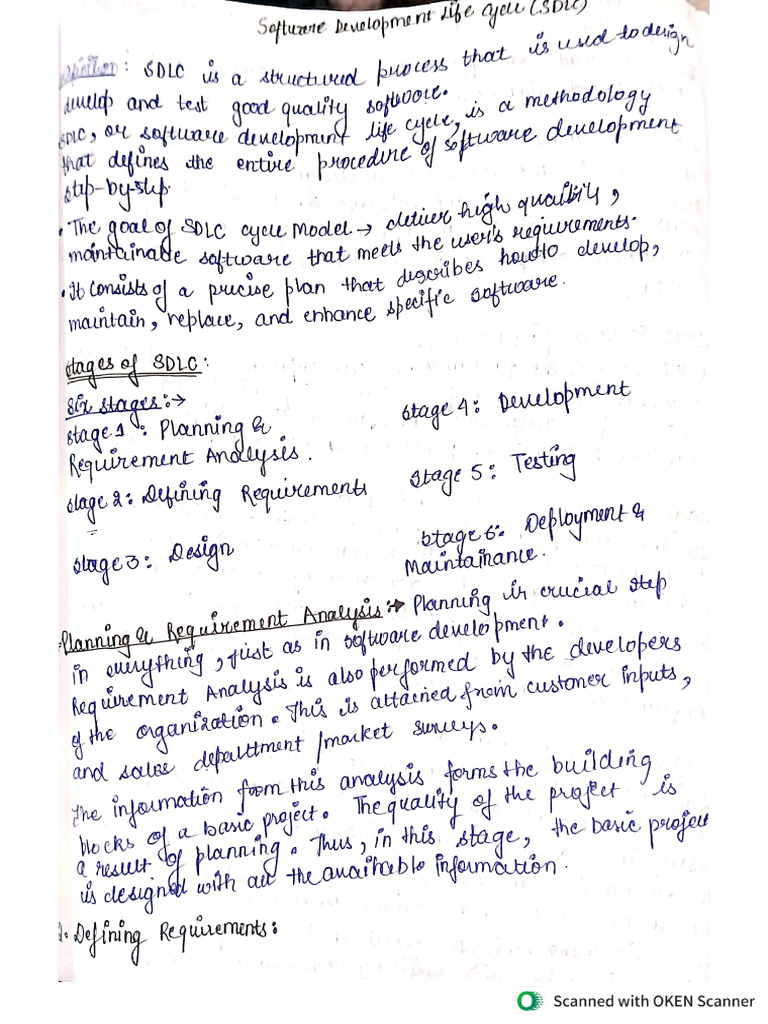 Software Development Life Cycle (SDLC)
Definition: SDLC is a structured process that is used to design
develop and test good quality software.
SDLC, or software development life cycle, is a methodology
that defines the entire procedure of software development
step-by-step.
• The goal of SDLC cycle Model → deliver high quality,
maintainable software that meets the user's requirements.
• It consists of a precise plan that describes how to develop,
maintain, replace, and enhance specific software.
Stages of SDLC:
Six stages:→
Stage 1 : Planning &
Requirement Analysis.
Stage 2: Defining Requirements
Stage 3: Design
Stage 4: Development
Stage 5: Testing
Stage 6: Deployment &
Maintainance.
Planning & Requirement Analysis:→ Planning is crucial step
in everything, just as in software development.
Requirement Analysis is also performed by the developers
of the organization. This is attained from customer inputs,
and sales department / market surveys.
The information from this analysis forms the building
blocks of a basic project. The quality of the project is
a result of planning. Thus, in this stage, the basic project
is designed with all the available information.
2. Defining Requirements:
Scanned with OKEN Scanner